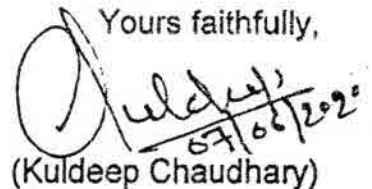 Yours faithfully,
Kuldeep
07/06/2020
(Kuldeep Chaudhary)